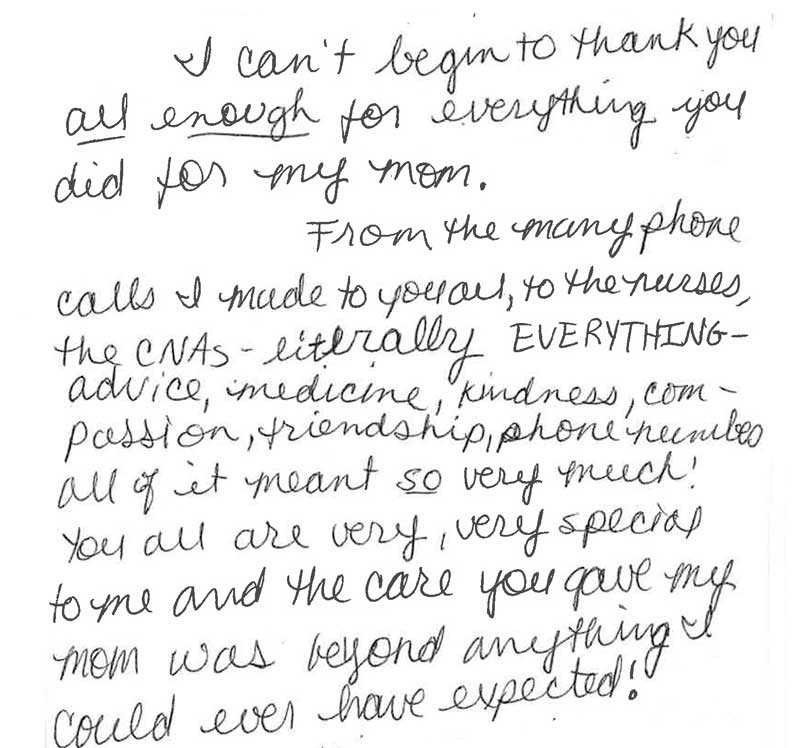 I can't begin to thank you
all enough for everything you
did for my mom.
From the many phone
calls I made to you all, to the nurses,
the CNAs - literally EVERYTHING -
advice, medicine, kindness, com-
passion, friendship, phone numbers
all of it meant so very much!
You all are very, very special
to me and the care you gave my
mom was beyond anything I
could ever have expected!